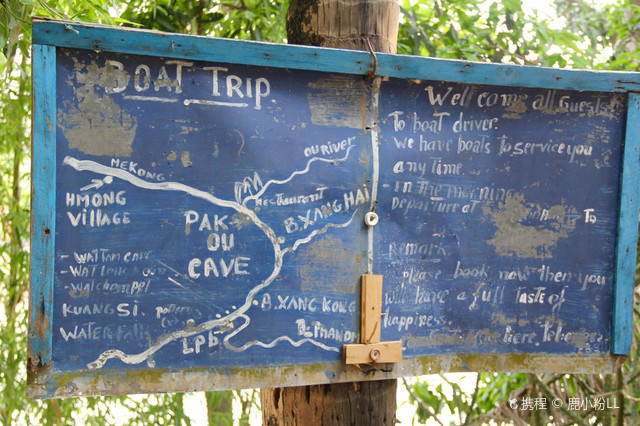 BOAT TRIP
OU RIVER
MEKONG
Restaurant
HMONG
VILLAGE
B.XANG HAI
PAK
OU
CAVE
KUANG SI.
WATER FALL
B.XANG KONG
B.PHANOM
LPb
Well come all Guests
To boat driver.
we have boats to service you
any time.
in the morning
Departure at To
Remark
please book now then you
will have a full taste of
happiness.
here, to
携程 © 鹿小粉LL